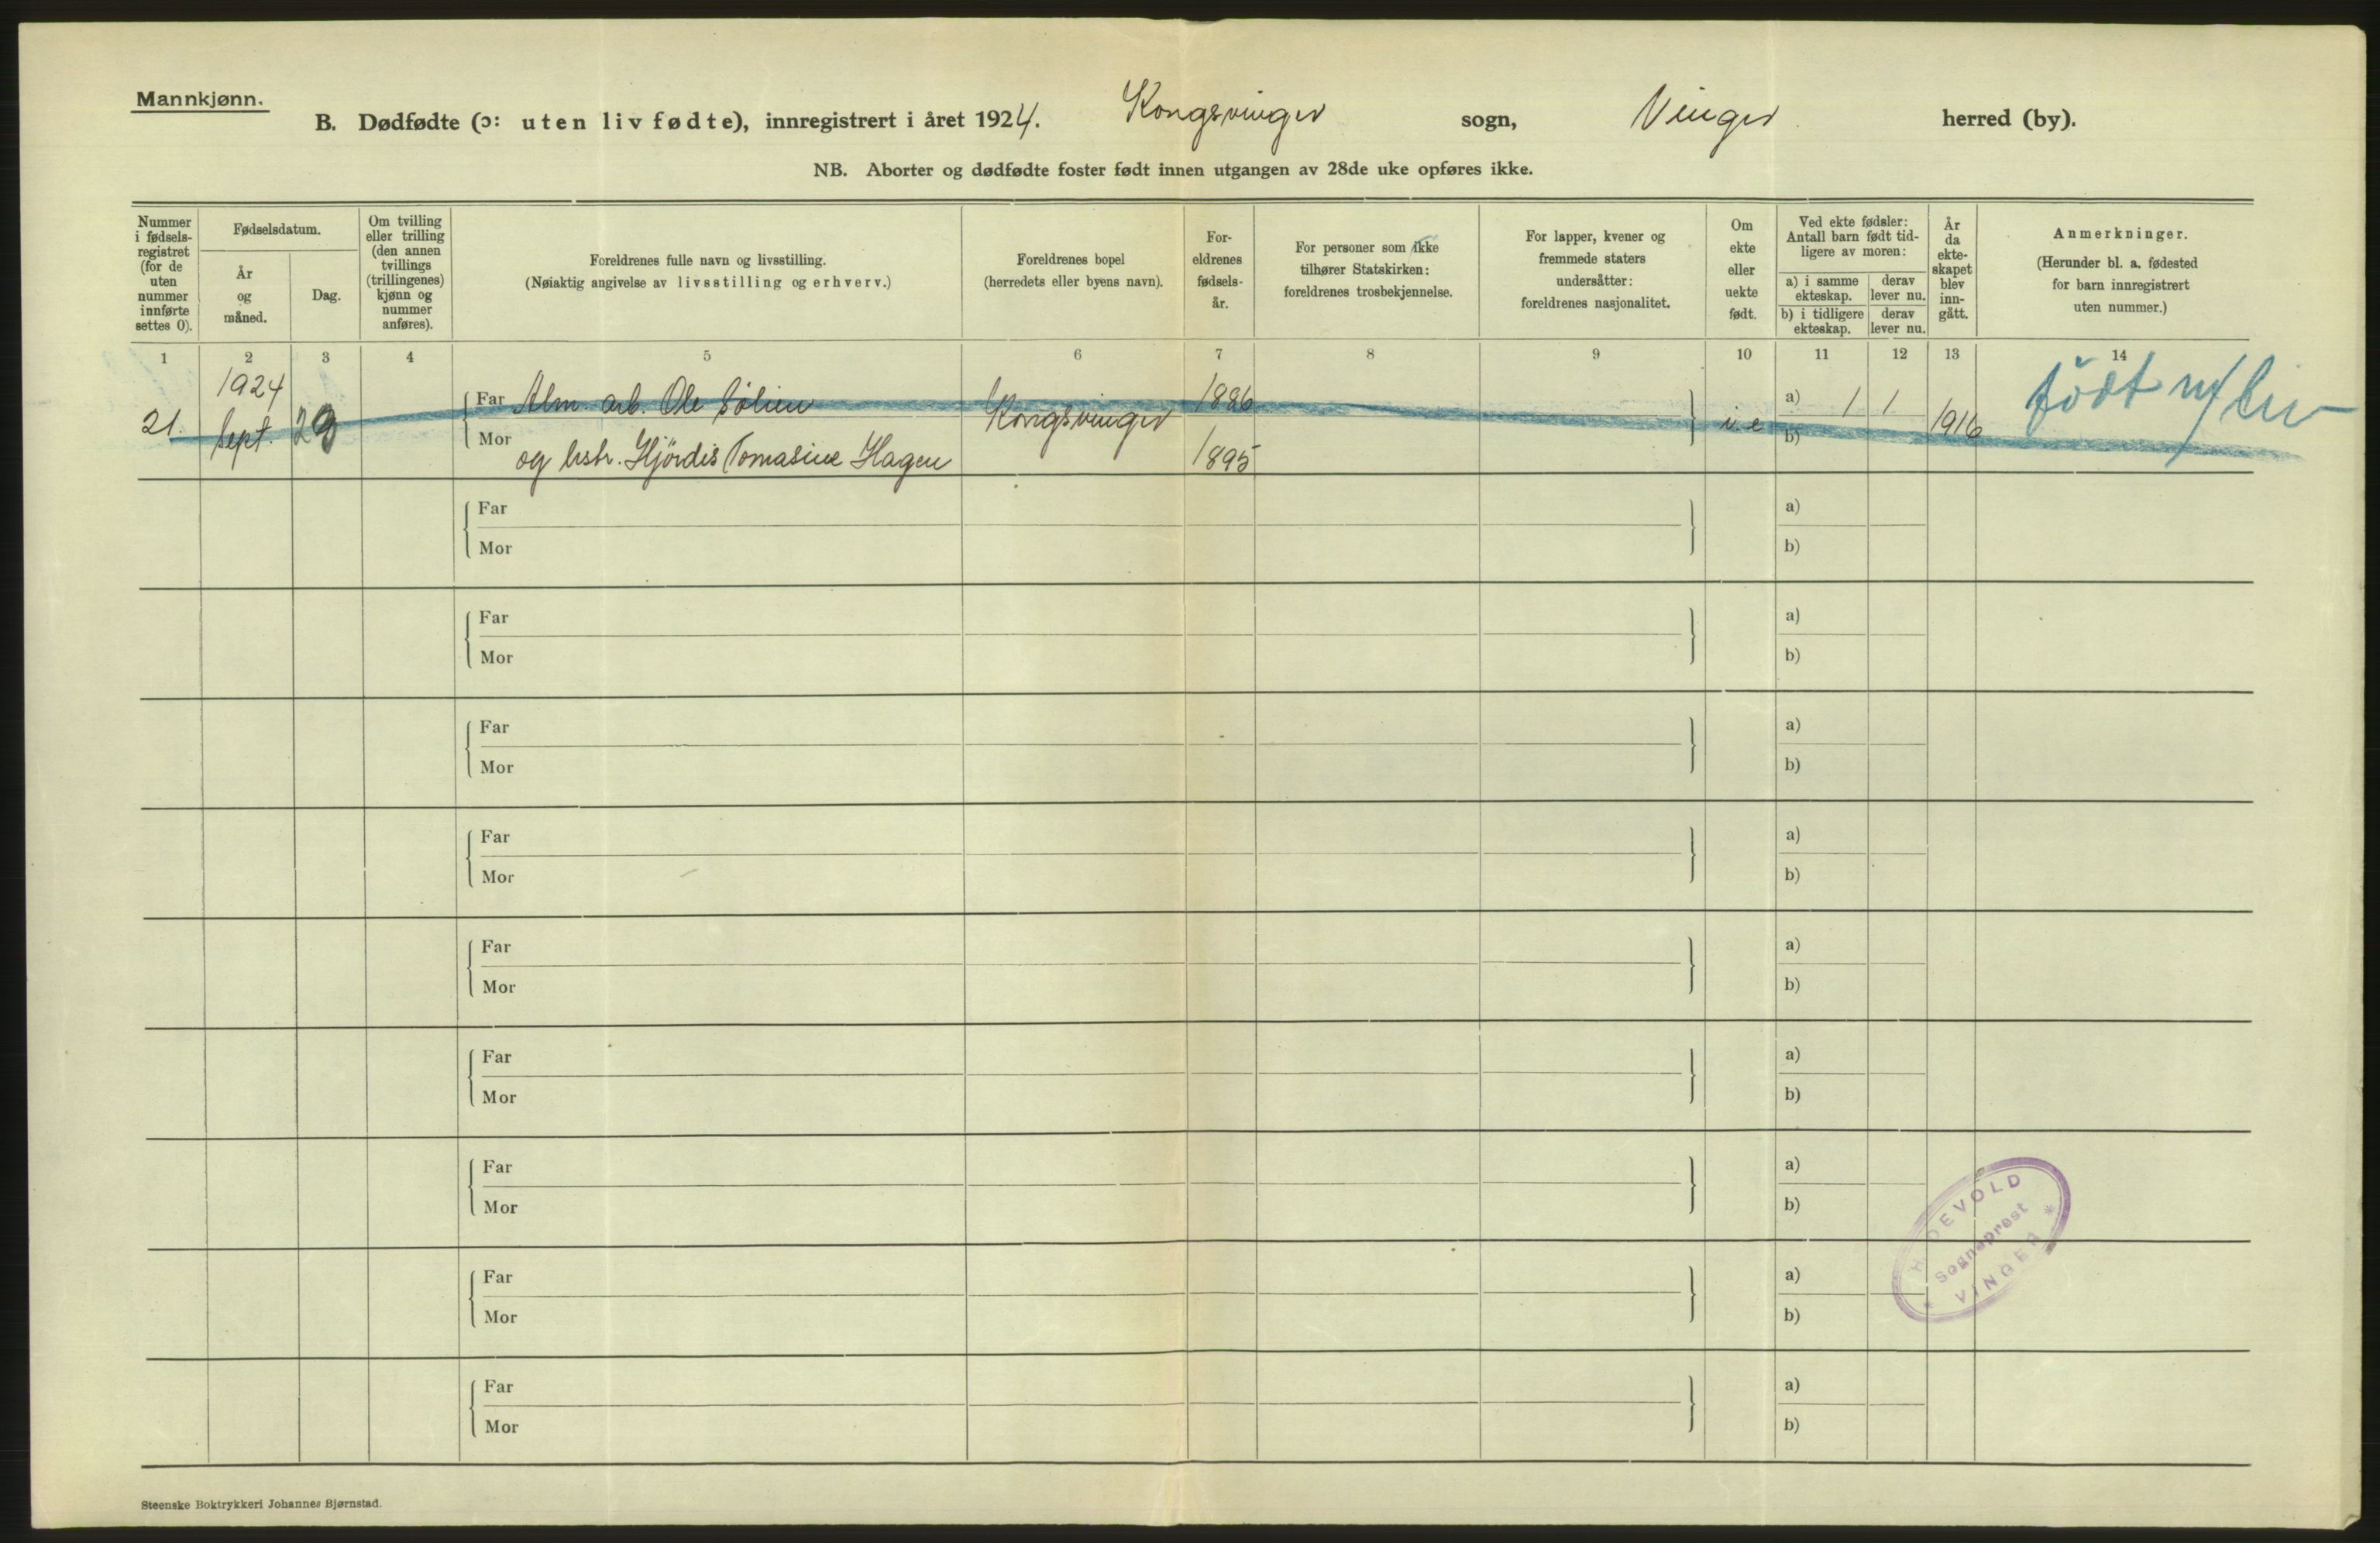 Mannkjønn.
B. Dødfødte (ɔ: uten liv fødte), innregistrert i året 1924. Kongsvinger sogn, Vinger herred (by).
NB. Aborter og dødfødte foster født innen utgangen av 28de uke opføres ikke.
Nummer
i fødsels-
registret
(for de
uten
nummer
innførte
settes 0).
Fødselsdatum.
År
og
måned.
Dag.
Om tvilling
eller trilling
(den annen
tvillings
(trillingenes)
kjønn og
nummer
anføres).
Foreldrenes fulle navn og livsstilling.
(Nøiaktig angivelse av livsstilling og erhverv.)
Foreldrenes bopel
(herredets eller byens navn).
For-
eldrenes
fødsels-
år.
For personer som ikke
tilhører Statskirken:
foreldrenes trosbekjennelse.
For lapper, kvener og
fremmede staters
undersåtter:
foreldrenes nasjonalitet.
Om
ekte
eller
uekte
født.
Ved ekte fødsler:
Antall barn født tid-
ligere av moren:
a) i samme
ekteskap.
derav
lever nu.
b) i tidligere
ekteskap.
derav
lever nu.
År
da
ekte-
skapet
blev
inn-
gått.
Anmerkninger.
(Herunder bl. a. fødested
for barn innregistrert
uten nummer.)
1 2 3 4 5 6 7 8 9 10 11 12 13 14
21. 1924 Sept. 23
Far Alm. arb. Ole Sölien Kongsvinger 1886 a) 1 1 1916 födt m/ liv
Mor og hstr. Hjördis Tomasine Hagen 1895 b)
Far a)
Mor b)
Far a)
Mor b)
Far a)
Mor b)
Far a)
Mor b)
Far a)
Mor b)
Far a)
Mor b)
Far a)
Mor b)
Far a)
Mor b)
Far a)
Mor b)
H. DEVOLD
Sogneprest
* VINGER *
Steenske Boktrykkeri Johannes Bjørnstad.